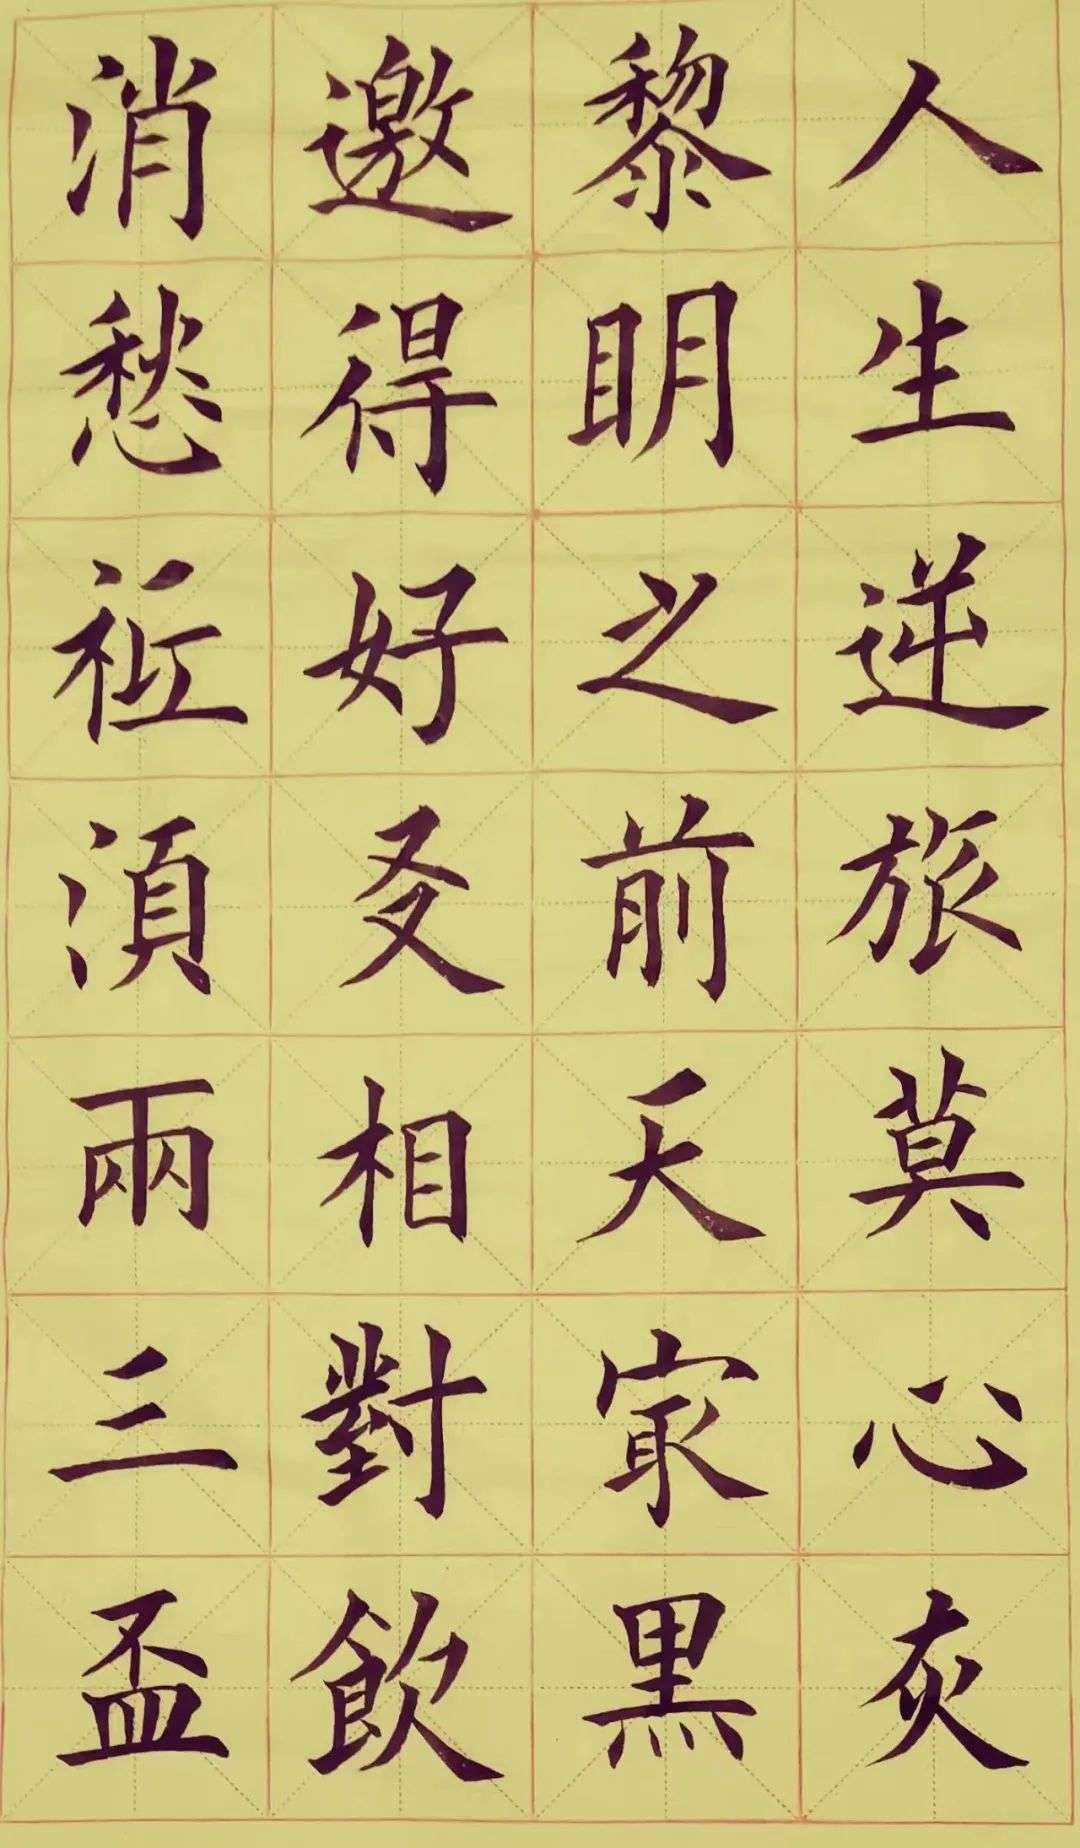 人生逆旅莫心灰
黎明之前天冣黑
邀得好友相對飲
消愁衹湏兩三盃